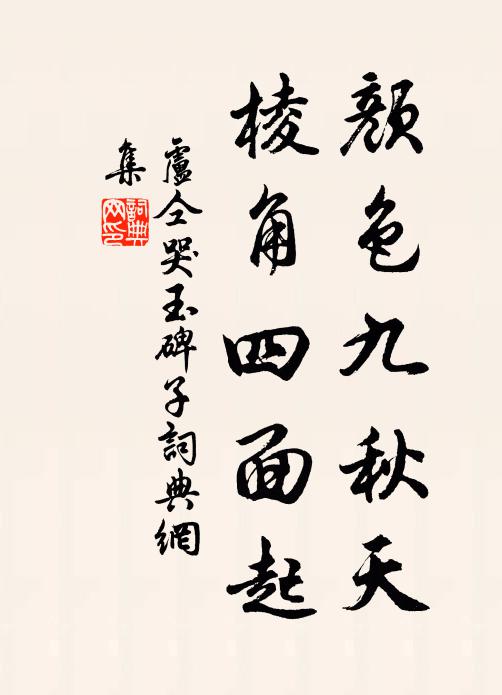 顏色九秋天
棱角四面起
盧仝哭玉碑子詞典網
集
詞典
网印